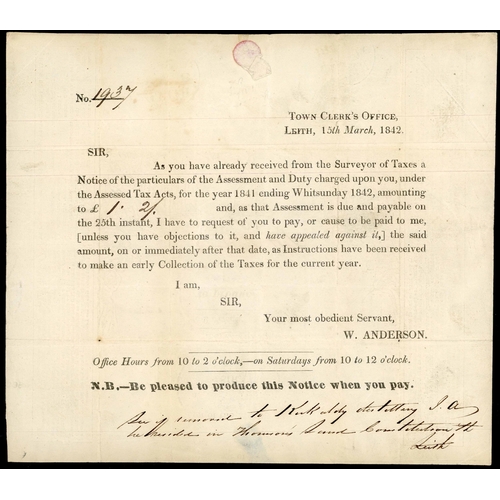 No. 1937
TOWN CLERK'S OFFICE,
LEITH, 15th March, 1842.
SIR,
As you have already received from the Surveyor of Taxes a
Notice of the particulars of the Assessment and Duty charged upon you, under
the Assessed Tax Acts, for the year 1841 ending Whitsunday 1842, amounting
to £ 1. 2/. and, as that Assessment is due and payable on
the 25th instant, I have to request of you to pay, or cause to be paid to me,
[unless you have objections to it, and have appealed against it,] the said
amount, on or immediately after that date, as Instructions have been received
to make an early Collection of the Taxes for the current year.
I am,
SIR,
Your most obedient Servant,
W. ANDERSON.
Office Hours from 10 to 2 o'clock,—on Saturdays from 10 to 12 o'clock.
N.B.—Be pleased to produce this Notice when you pay.
removed to Kirkaldy distillery
resided in Thomson's Land Constitution St
Leith